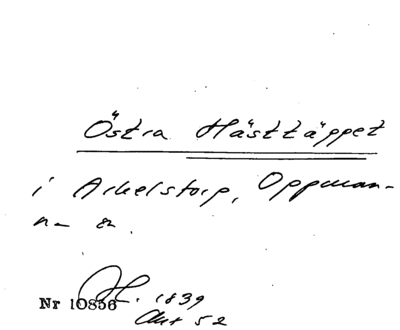 Östra Hästtäppet
i Arkelstorp, Oppman-
na sn.
H. 1839
Akt 52
Nr 10856